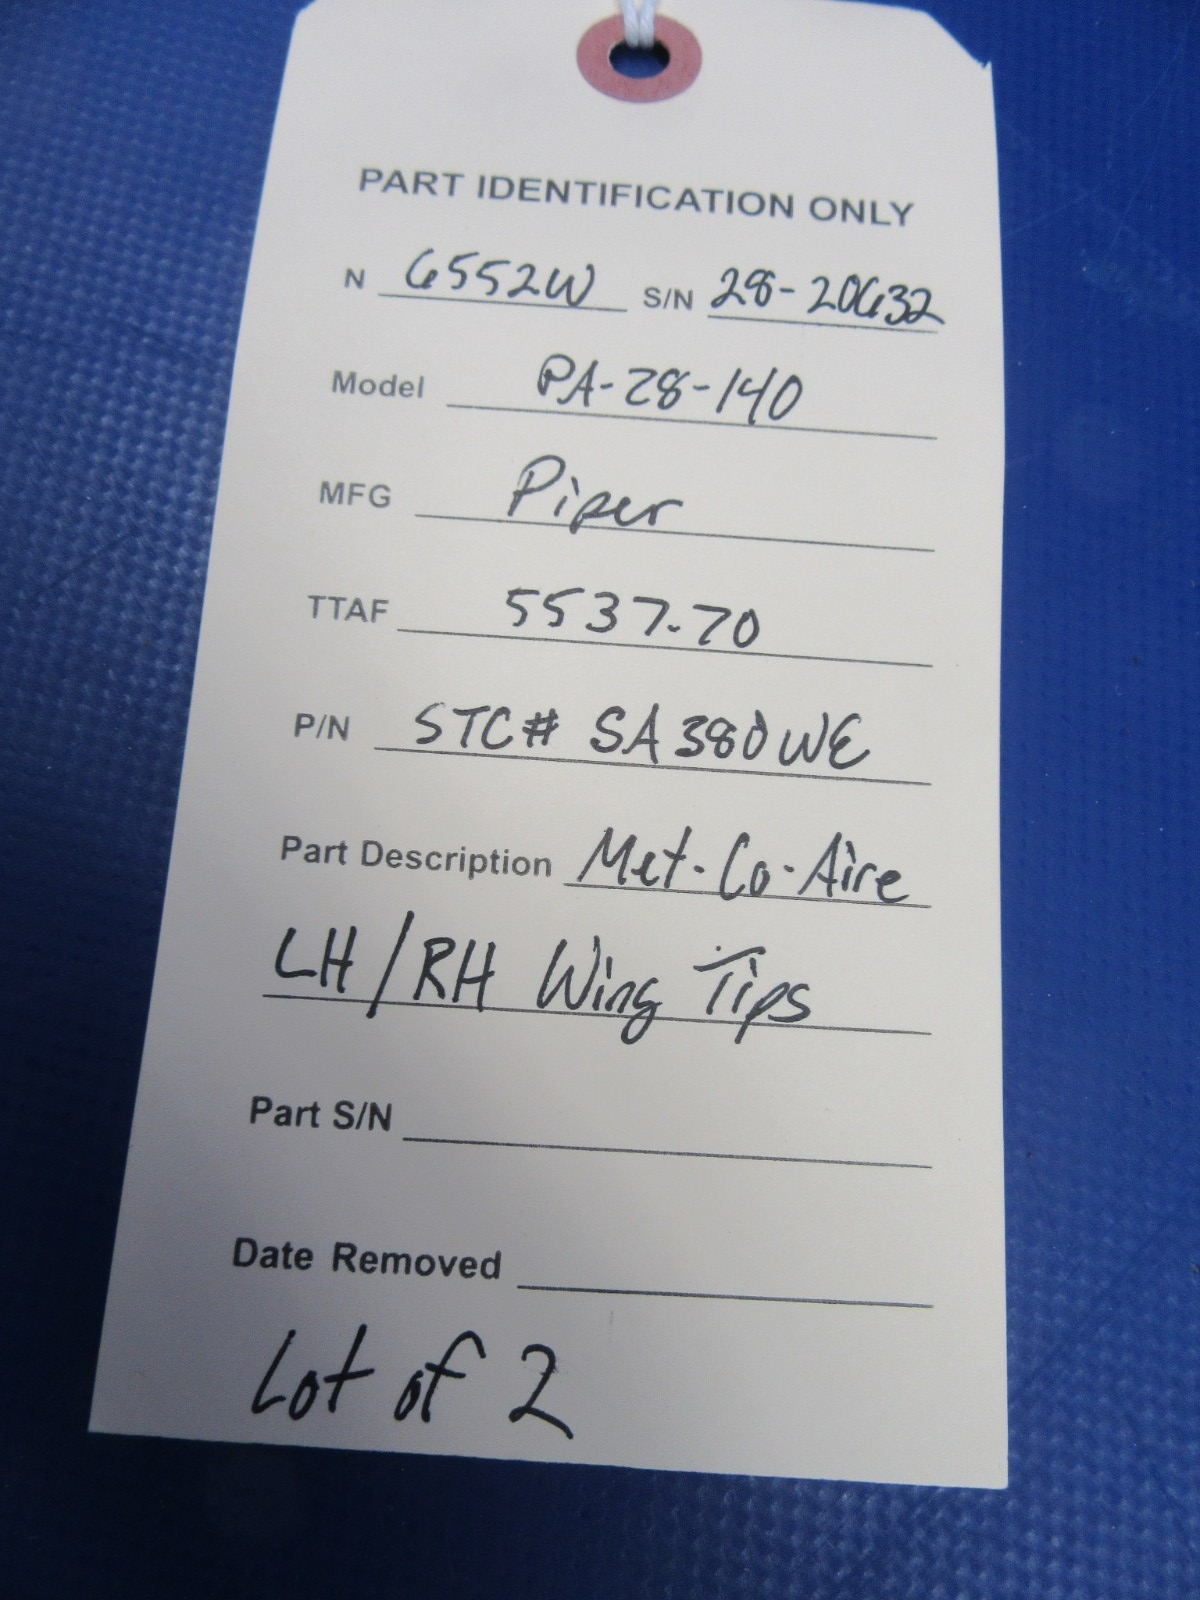 PART IDENTIFICATION ONLY
N 6552W S/N 28-20632
Model PA-28-140
MFG Piper
TTAF 5537.70
P/N STC# SA380WE
Part Description Met-Co-Aire
LH/RH Wing Tips
Part S/N
Date Removed
Lot of 2